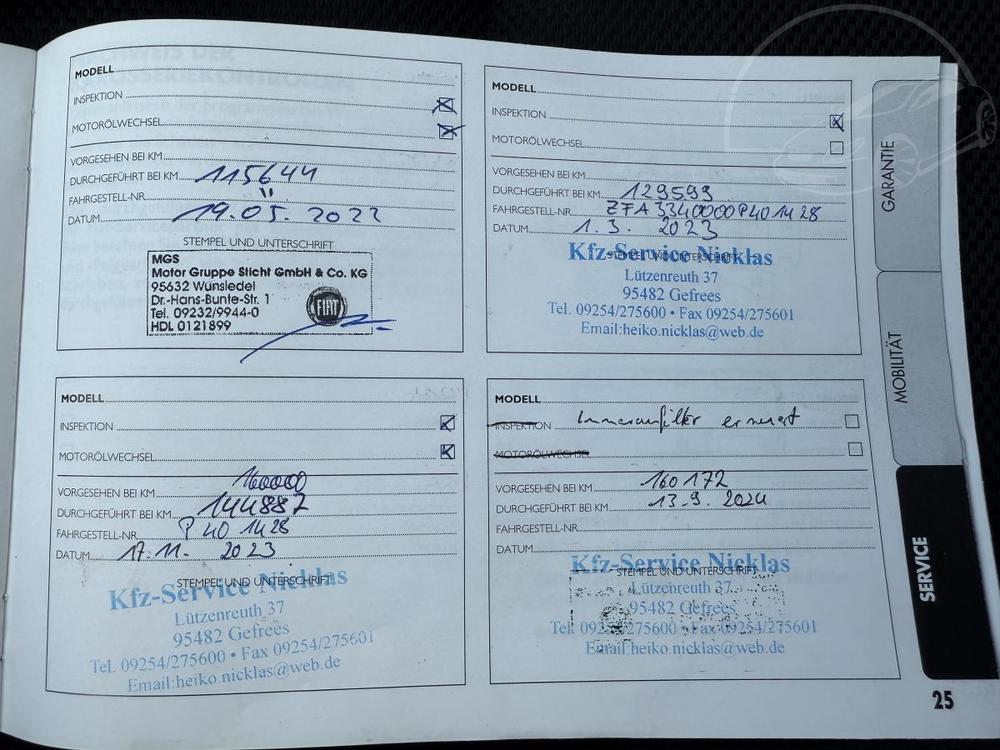 MODELL
INSPEKTION
MOTORÖLWECHSEL
VORGESEHEN BEI KM
DURCHGEFÜHRT BEI KM 115644
FAHRGESTELL-NR. "
DATUM 19.05. 2022
STEMPEL UND UNTERSCHRIFT
MGS
Motor Gruppe Sticht GmbH & Co. KG
95632 Wunsiedel
Dr.-Hans-Bunte-Str. 1
Tel. 09232/9944-0
HDL 0121899
FIAT
MODELL
INSPEKTION
MOTORÖLWECHSEL
VORGESEHEN BEI KM
DURCHGEFÜHRT BEI KM 129599
FAHRGESTELL-NR. ZFA3340000P401428
DATUM 1.3. 2023
STEMPEL UND UNTERSCHRIFT
Kfz-Service Nicklas
Lützenreuth 37
95482 Gefrees
Tel. 09254/275600 • Fax 09254/275601
Email:heiko.nicklas@web.de
MODELL
INSPEKTION
MOTORÖLWECHSEL
VORGESEHEN BEI KM 160000
DURCHGEFÜHRT BEI KM 144887
FAHRGESTELL-NR. P401428
DATUM 17.11. 2023
STEMPEL UND UNTERSCHRIFT
Kfz-Service Nicklas
Lützenreuth 37
95482 Gefrees
Tel. 09254/275600 • Fax 09254/275601
Email:heiko.nicklas@web.de
MODELL
INSPEKTION Innenraumfilter erneuert
MOTORÖLWECHSEL
VORGESEHEN BEI KM 160172
DURCHGEFÜHRT BEI KM 13.9.2024
FAHRGESTELL-NR.
DATUM
STEMPEL UND UNTERSCHRIFT
Kfz-Service Nicklas
Lützenreuth 37
95482 Gefrees
Tel. 09254/275600 • Fax 09254/275601
Email:heiko.nicklas@web.de
GARANTIE
MOBILITÄT
SERVICE
25